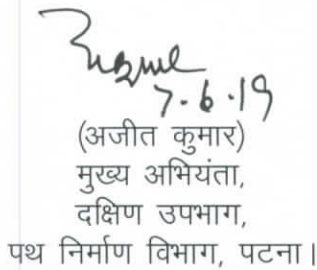 7.6.19
(अजीत कुमार)
मुख्य अभियंता,
दक्षिण उपभाग,
पथ निर्माण विभाग, पटना।